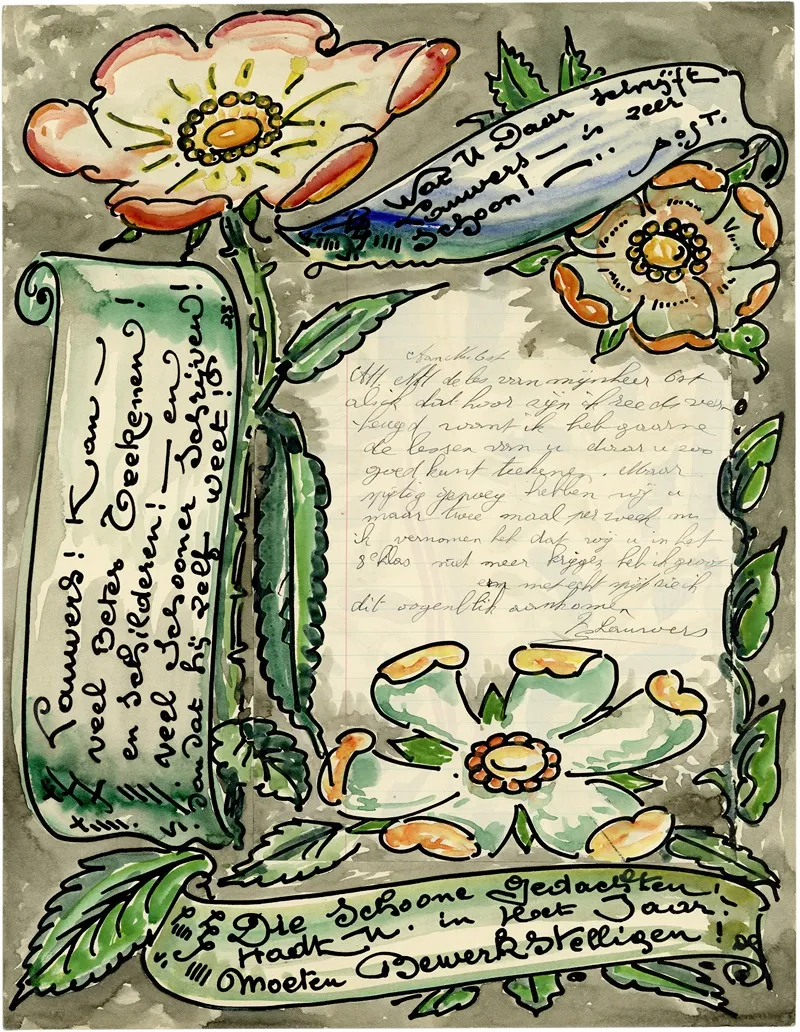 Wat U Daar schrijft
Lauwers — is zeer
Schoon! — ..
P. OST.
Lauwers! Kan —
veel Beter Teekenen!
en Schilderen! — en
veel Schooner Schrijven!
dan dat hij zelf weet!
Aan Mr Ost
Als de les van mijnheer Ost
daar zijn ik reeds ver
heugd want ik heb gaarne
de lessen van u daar u zoo
goed kunt teekenen. Maar
spijtig genoeg hebben wij u
maar twee maal per week nu
ik vernomen heb dat wij u in het
8e klas niet meer krijgen heb ik groot
en met echt spijt zie ik
dit oogenblik aankomen
Lauwers
Die Schoone Gedachten!
Hadt U. in Het Jaar!
Moeten Bewerkstelligen!